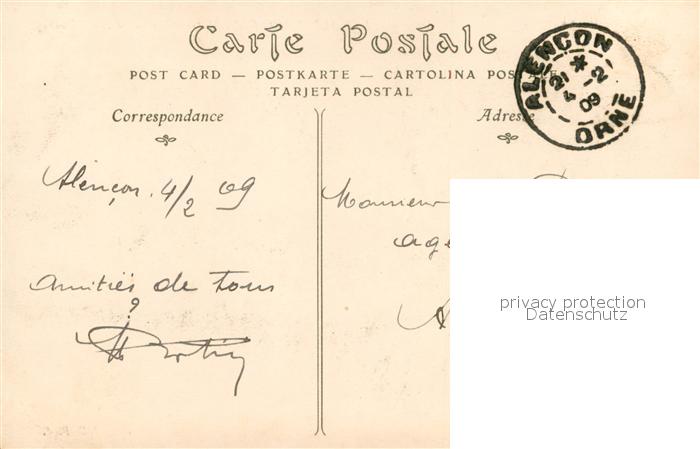 Carte Postale
POST CARD — POSTKARTE — CARTOLINA POSTALE
TARJETA POSTAL
Correspondance
Adresse
ALENCON
21 * 2
4 09
ORNE
Alençon. 4/2 09
Monsieur
age
Amitiés de tous
privacy protection
Datenschutz